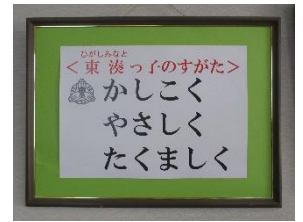 ひがしみなと
＜東湊っ子のすがた＞
かしこく
やさしく
たくましく